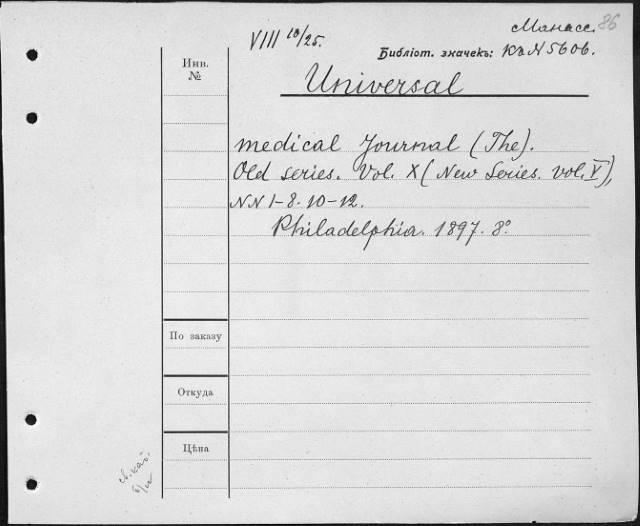 Манасс. 86
VIII 10/25.
Библіот. значекъ: КъN5606.
Инв.
№
Universal
medical Journal (The).
Old series. Vol. X (New Series. vol. V),
NN 1-8. 10-12.
Philadelphia. 1897. 8°
По заказу
Откуда
Цѣна